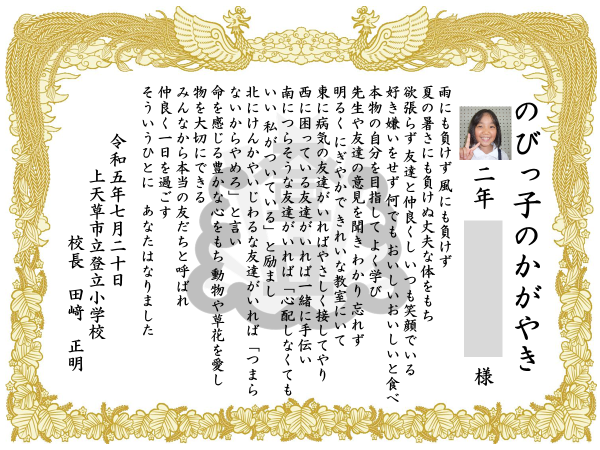 のびっ子のかがやき
二年
様
雨にも負けず 風にも負けず
夏の暑さにも負けぬ丈夫な体をもち
欲張らず 友達と仲良くし いつも笑顔でいる
好き嫌いをせず 何でも おいしいおいしいと食べ
本物の自分を目指して よく学び
先生や友達の意見を聞き わかり 忘れず
明るく にぎやかで きれいな教室にいて
東に病気の友達がいればやさしく接してやり
西に困っている友達がいれば一緒に手伝い
南につらそうな友達がいれば「心配しなくても
いい 私がついている」と励まし
北にけんかやいじわるな友達がいれば「つまら
ないからやめろ」と言い
命を感じる豊かな心をもち 動物や草花を愛し
物を大切にできる
みんなから本当の友だちと呼ばれ
仲良く一日を過ごす
そういうひとに あなたはなりました
令和五年七月二十日
上天草市立登立小学校
校長 田﨑 正明